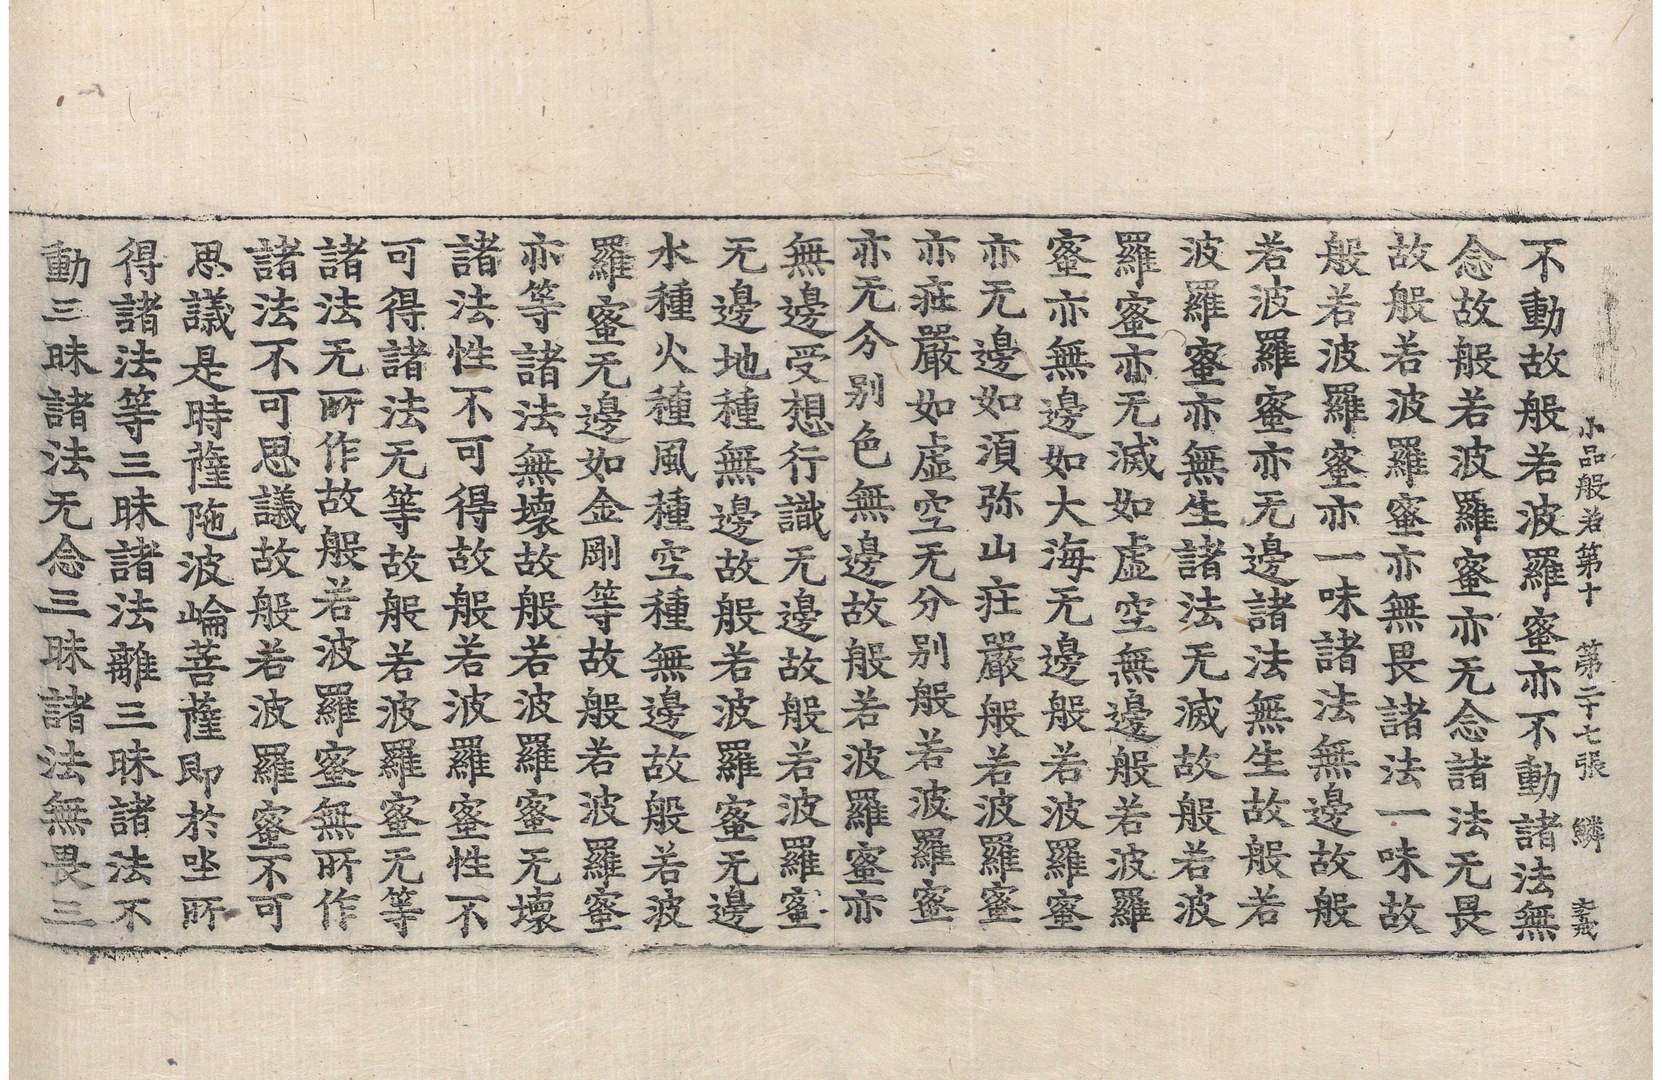 小品般若第十　第二十七張　鱗
不動故般若波羅蜜亦不動諸法無
念故般若波羅蜜亦无念諸法无畏
故般若波羅蜜亦無畏諸法一味故
般若波羅蜜亦一味諸法無邊故般
若波羅蜜亦无邊諸法無生故般若
波羅蜜亦無生諸法无滅故般若波
羅蜜亦无滅如虛空無邊般若波羅
蜜亦無邊如大海无邊般若波羅蜜
亦无邊如湏弥山莊嚴般若波羅蜜
亦莊嚴如虛空无分别般若波羅蜜
亦无分别色無邊故般若波羅蜜亦
無邊受想行識无邊故般若波羅蜜
无邊地種無邊故般若波羅蜜无邊
水種火種風種空種無邊故般若波
羅蜜无邊如金剛等故般若波羅蜜
亦等諸法無壞故般若波羅蜜无壞
諸法性不可得故般若波羅蜜性不
可得諸法无等故般若波羅蜜无等
諸法无所作故般若波羅蜜無所作
諸法不可思議故般若波羅蜜不可
思議是時薩陁波崘菩薩即於㘴所
得諸法等三昧諸法離三昧諸法不
動三昧諸法无念三昧諸法無畏三